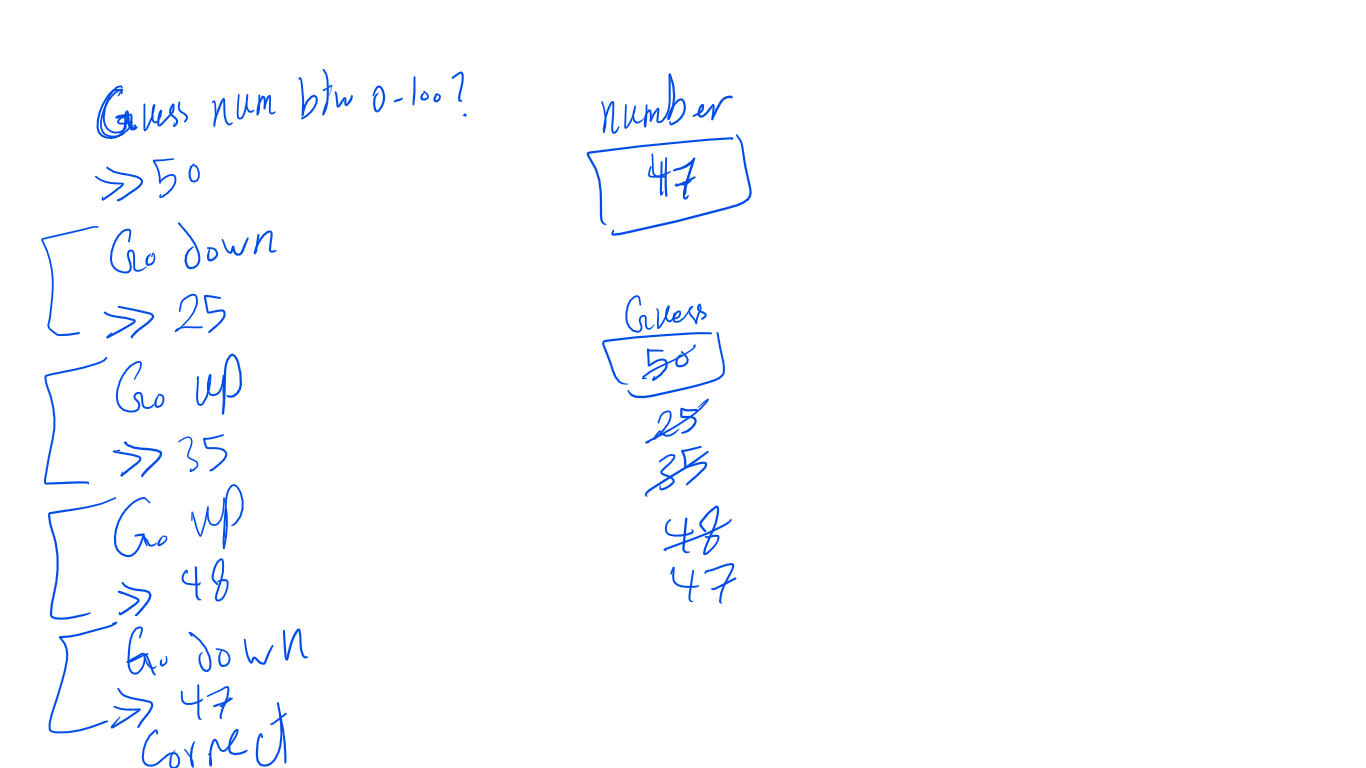 Guess num btw 0-100?
>> 50
Go down
>> 25
Go up
>> 35
Go up
>> 48
Go down
>> 47
Correct
number
47
Guess
50
25
35
48
47